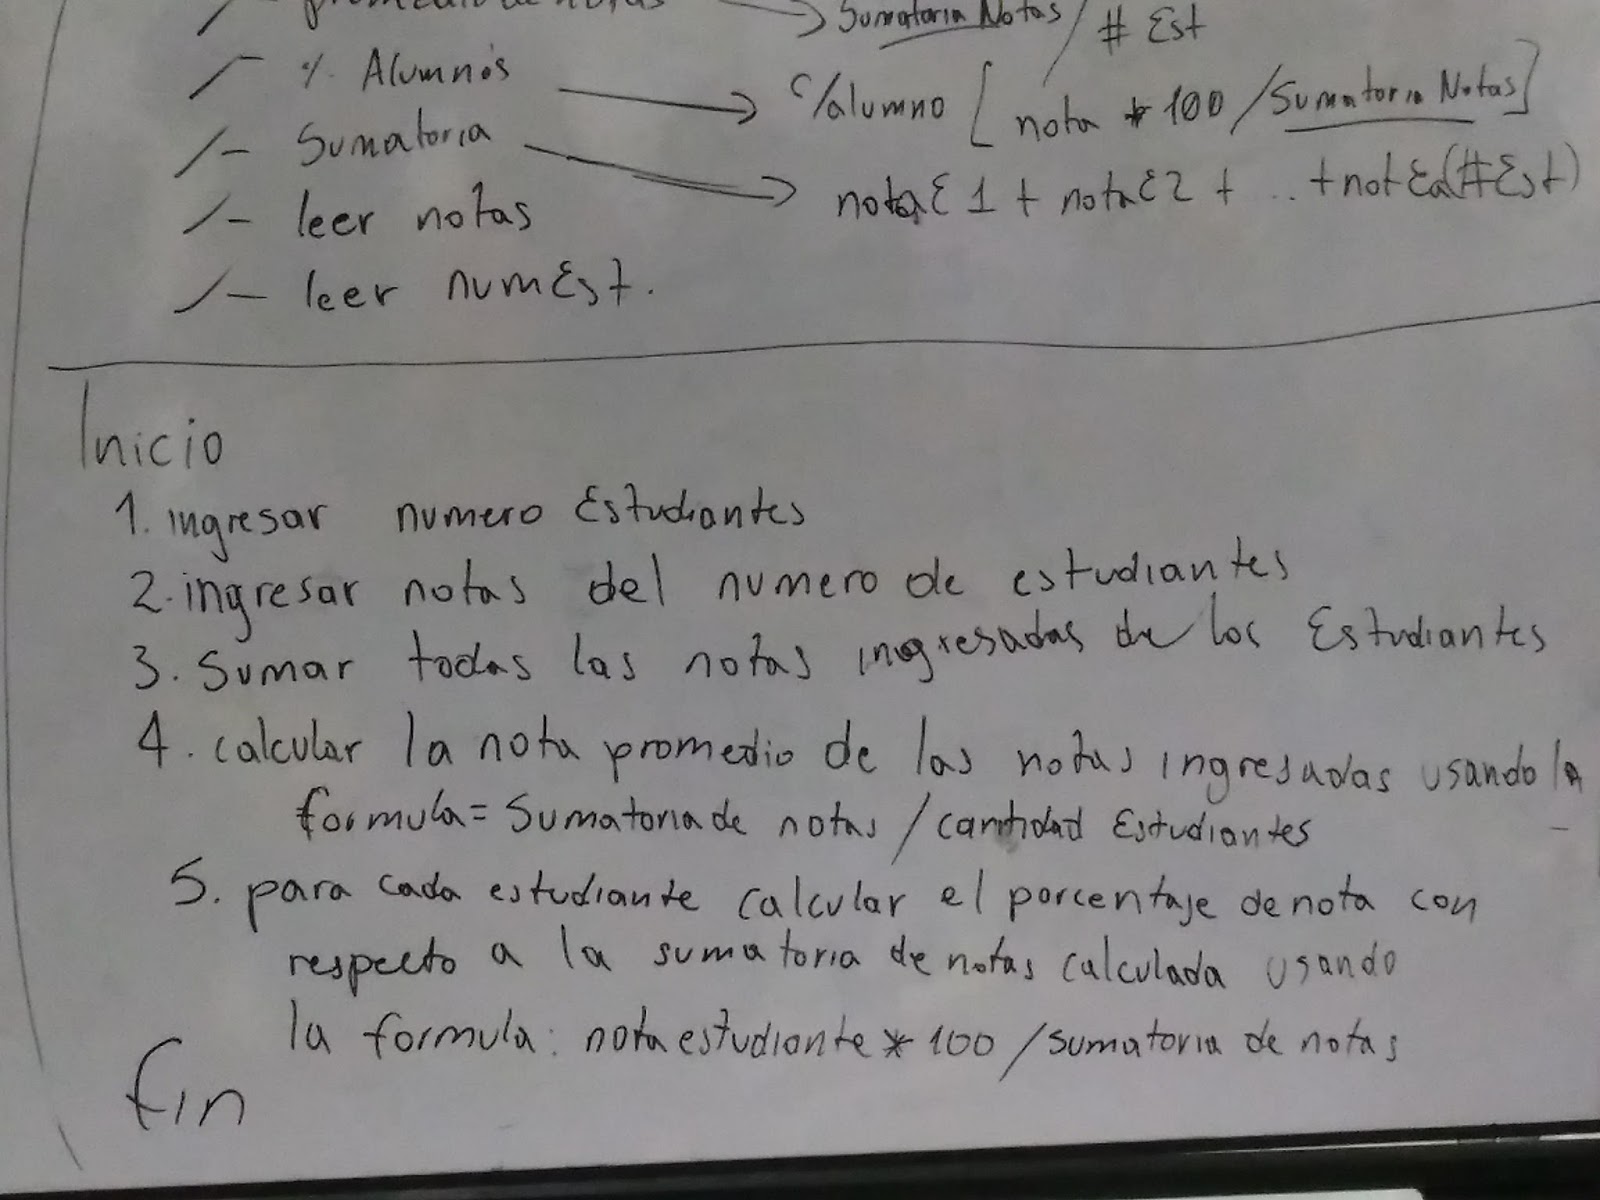 - promedio de notas → Sumatoria Notas / # Est
/- % Alumnos → c/alumno [nota * 100 / Sumatoria Notas]
/- Sumatoria → notaE1 + notaE2 + .. + notEa(#Est)
/- leer notas
/- leer numEst.
Inicio
1. ingresar numero Estudiantes
2. ingresar notas del numero de estudiantes
3. Sumar todas las notas ingresadas de los Estudiantes
4. calcular la nota promedio de las notas ingresadas usando la
formula = Sumatoria de notas / cantidad Estudiantes
5. para cada estudiante calcular el porcentaje de nota con
respecto a la sumatoria de notas calculada usando
la formula: nota estudiante * 100 / sumatoria de notas
fin